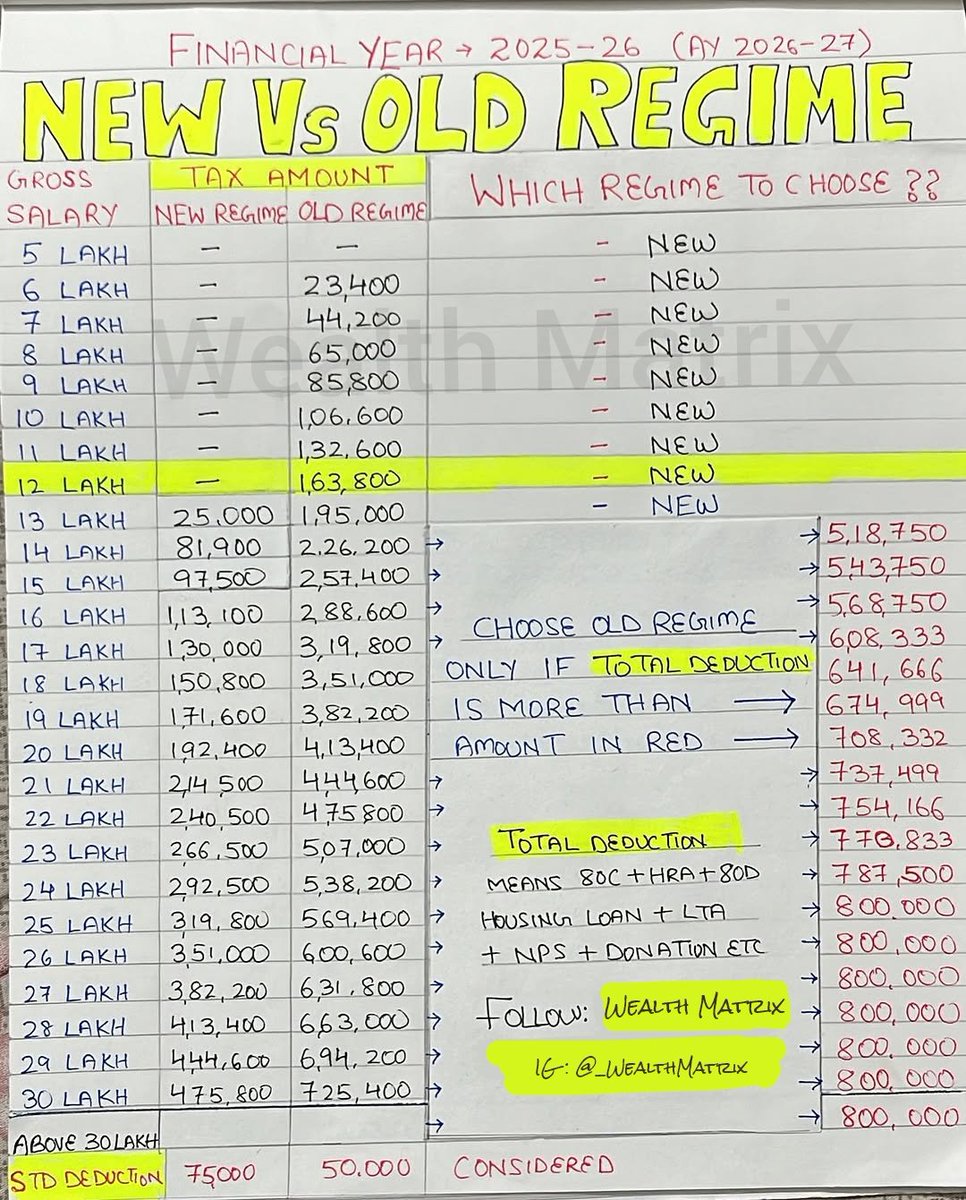 FINANCIAL YEAR → 2025-26 (AY 2026-27)
NEW Vs OLD REGIME
GROSS SALARY TAX AMOUNT WHICH REGIME TO CHOOSE ??
NEW REGIME OLD REGIME
5 LAKH — — - NEW
6 LAKH — 23,400 - NEW
7 LAKH — 44,200 - NEW
8 LAKH — 65,000 - NEW
9 LAKH — 85,800 - NEW
10 LAKH — 1,06,600 - NEW
11 LAKH — 1,32,600 - NEW
12 LAKH — 1,63,800 - NEW
13 LAKH 25.000 1,95,000 - NEW
14 LAKH 81,900 2,26,200 → → 5,18,750
15 LAKH 97,500 2,57,400 → → 5,43,750
16 LAKH 1,13,100 2,88,600 → → 5,68,750
17 LAKH 1,30,000 3,19,800 → → 6,08,333
18 LAKH 1,50,800 3,51,000 641,666
19 LAKH 1,71,600 3,82,200 674,999
20 LAKH 1,92,400 4,13,400 708,332
21 LAKH 2,14,500 4,44,600 → → 737,499
22 LAKH 2,40,500 475800 → → 754,166
23 LAKH 266,500 5,07,000 → → 770,833
24 LAKH 292,500 5,38,200 → → 787,500
25 LAKH 319,800 569,400 → → 800,000
26 LAKH 351,000 600,600 → → 800,000
27 LAKH 3,82,200 6,31,800 → → 800,000
28 LAKH 4,13,400 6,63,000 → → 800,000
29 LAKH 444,600 6,94,200 → → 800,000
30 LAKH 475,800 725,400 → → 800,000
ABOVE 30 LAKH → → 800,000
STD DEDUCTION 75000 50.000 CONSIDERED
CHOOSE OLD REGIME
ONLY IF TOTAL DEDUCTION
IS MORE THAN →
AMOUNT IN RED →
TOTAL DEDUCTION
MEANS 80C + HRA + 80D
HOUSING LOAN + LTA
+ NPS + DONATION ETC
FOLLOW: WEALTH MATTRIX
IG: @_WEALTHMATTRIX
Wealth Matrix